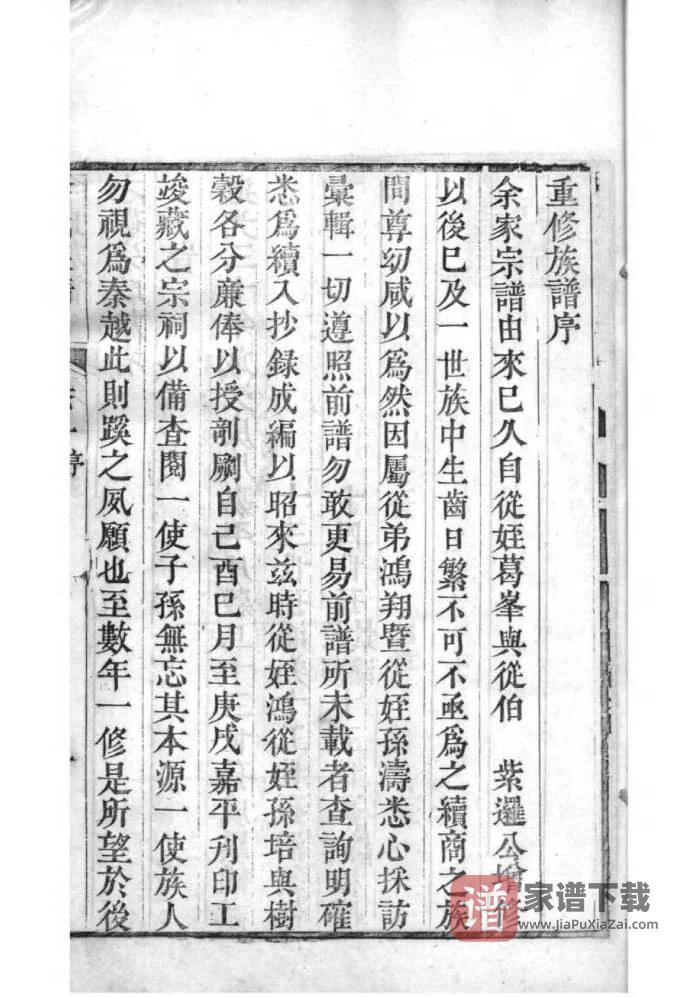 重修族譜序
余家宗譜由來已久自從姪葛峯與從伯　紫邏公增修
以後已及一世族中生齒日繁不可不亟爲之續商之族
間尊幼咸以爲然因屬從弟鴻翔暨從姪孫濤悉心採訪
彙輯一切遵照前譜勿敢更易前譜所未載者查詢明確
悉爲續入抄錄成編以昭來茲時從姪鴻從姪孫培與樹
穀各分廉俸以授剞劂自己酉巳月至庚戌嘉平刋印工
竣藏之宗祠以備查閱一使子孫無忘其本源一使族人
勿視爲秦越此則蹊之夙願也至數年一修是所望於後
序
谱 家谱下载
www.JiaPuXiaZai.com